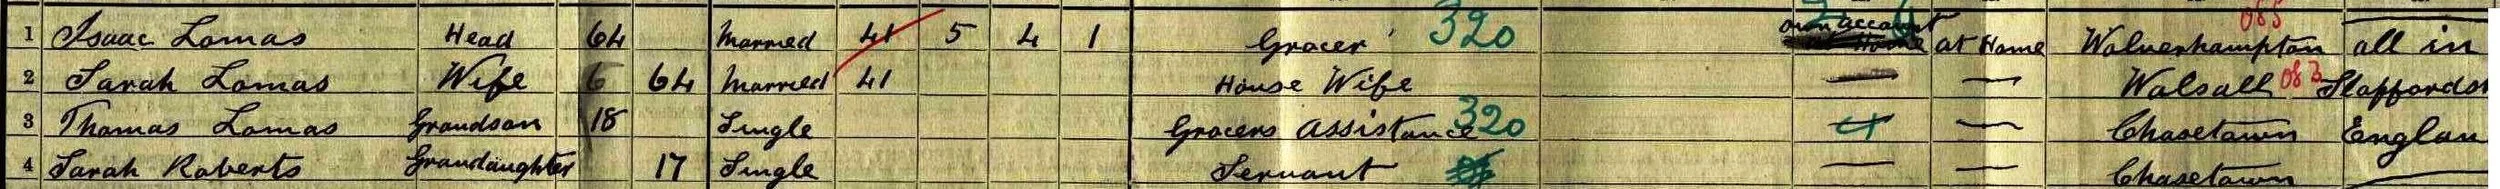 1 Isaac Lomas Head 64 Married 41 5 4 1 Grocer 320 own account at Home Wolverhampton 085 all in
2 Sarah Lomas Wife 6 64 Married 41 House Wife — — Walsall 083 Staffords
3 Thomas Lomas Grandson 18 Single Grocers Assistance 320 — Chasetown Englan
4 Sarah Roberts Grandaughter 17 Single Servant — — Chasetown